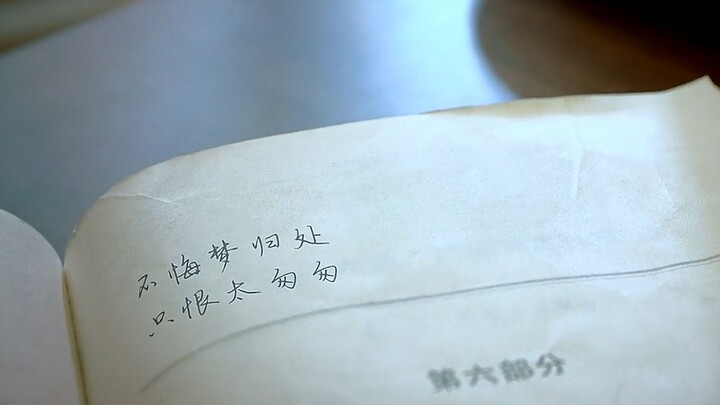 不悔梦归处
只恨太匆匆
第六部分